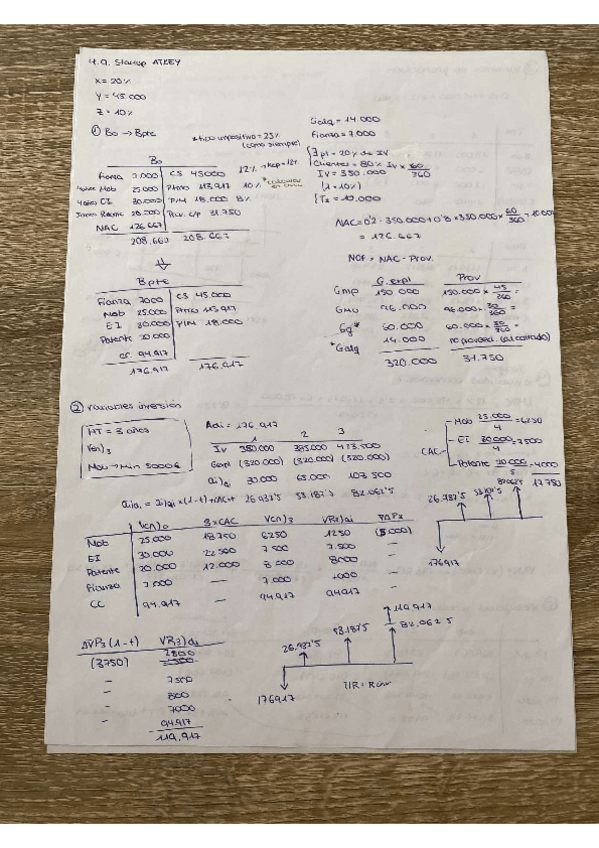 4.9. Startup ATKEY
X = 20%
Y = 45.000
Z = 10%
① Bo → Bpte
*tipo impositivo = 25%
(como siempre)
Galq = 14.000
Fianza = 7.000
Clientes = 80% IV × 60/360
IV = 350.000
(1 = 10%)
Ts = 10.000
Bo
Fianza 7.000 CS 45000 12% → Kcp = 12%
Mob 25.000 Ptmo 113.917 10%
EI 30.000 P/M 18.000 8%
20.000 Prov. c/p 31.750
NAC 126.667
208.667 208.667
NAC = 0'2 · 350.000 + 0'8 × 350.000 × 60/360 + 10.000
= 126.667
NCF = NAC - Prov.
Bpte
Fianza 7000 CS 45.000
Mob 25.000 Ptmo 113.917
EI 30.000 P/M 18.000
Patente 20.000
CC 94.917
176.917 176.917
G. expl Prov
Gmp 150.000 150.000 × 45/360
GMO 96.000 96.000 × 30/360 =
Gg* 60.000 60.000 × 30/360 =
*Galq 14.000 no proveed. (al contado)
320.000 31.750
② Variables inversión
HT = 3 años
Vcn)3
Mob → Min 5000€
Adi = 176.917
1 2 3
IV 350.000 385.000 423.500
Gexpl (320.000) (320.000) (320.000)
ai)a 30.000 65.000 103.500
26.937'5 53.187'5 82.062'5
CAC
Mob 25.000/4 = 6250
EI 30.000/4 = 7500
Patente 20.000/5 = 4000
17.750
26.937'5 53.187'5 82062'5
176917
Vcn)0 3×CAC Vcn)3 VR3)ai
Mob 25.000 18.750 6250 1250 (5.000)
EI 30.000 22.500 7.500 7.500 —
Patente 20.000 12.000 8.000 8000 —
Fianza 7.000 — 7.000 7000 —
CC 94.917 — 94.917 94.917 —
119.917
82.062'5
53.187'5
26.937'5
176917
TIR = RCIN
ΔVP3 (1-t) VR3)di
(3750)
— 7500
— 8000
— 7000
— 94.917
119.917